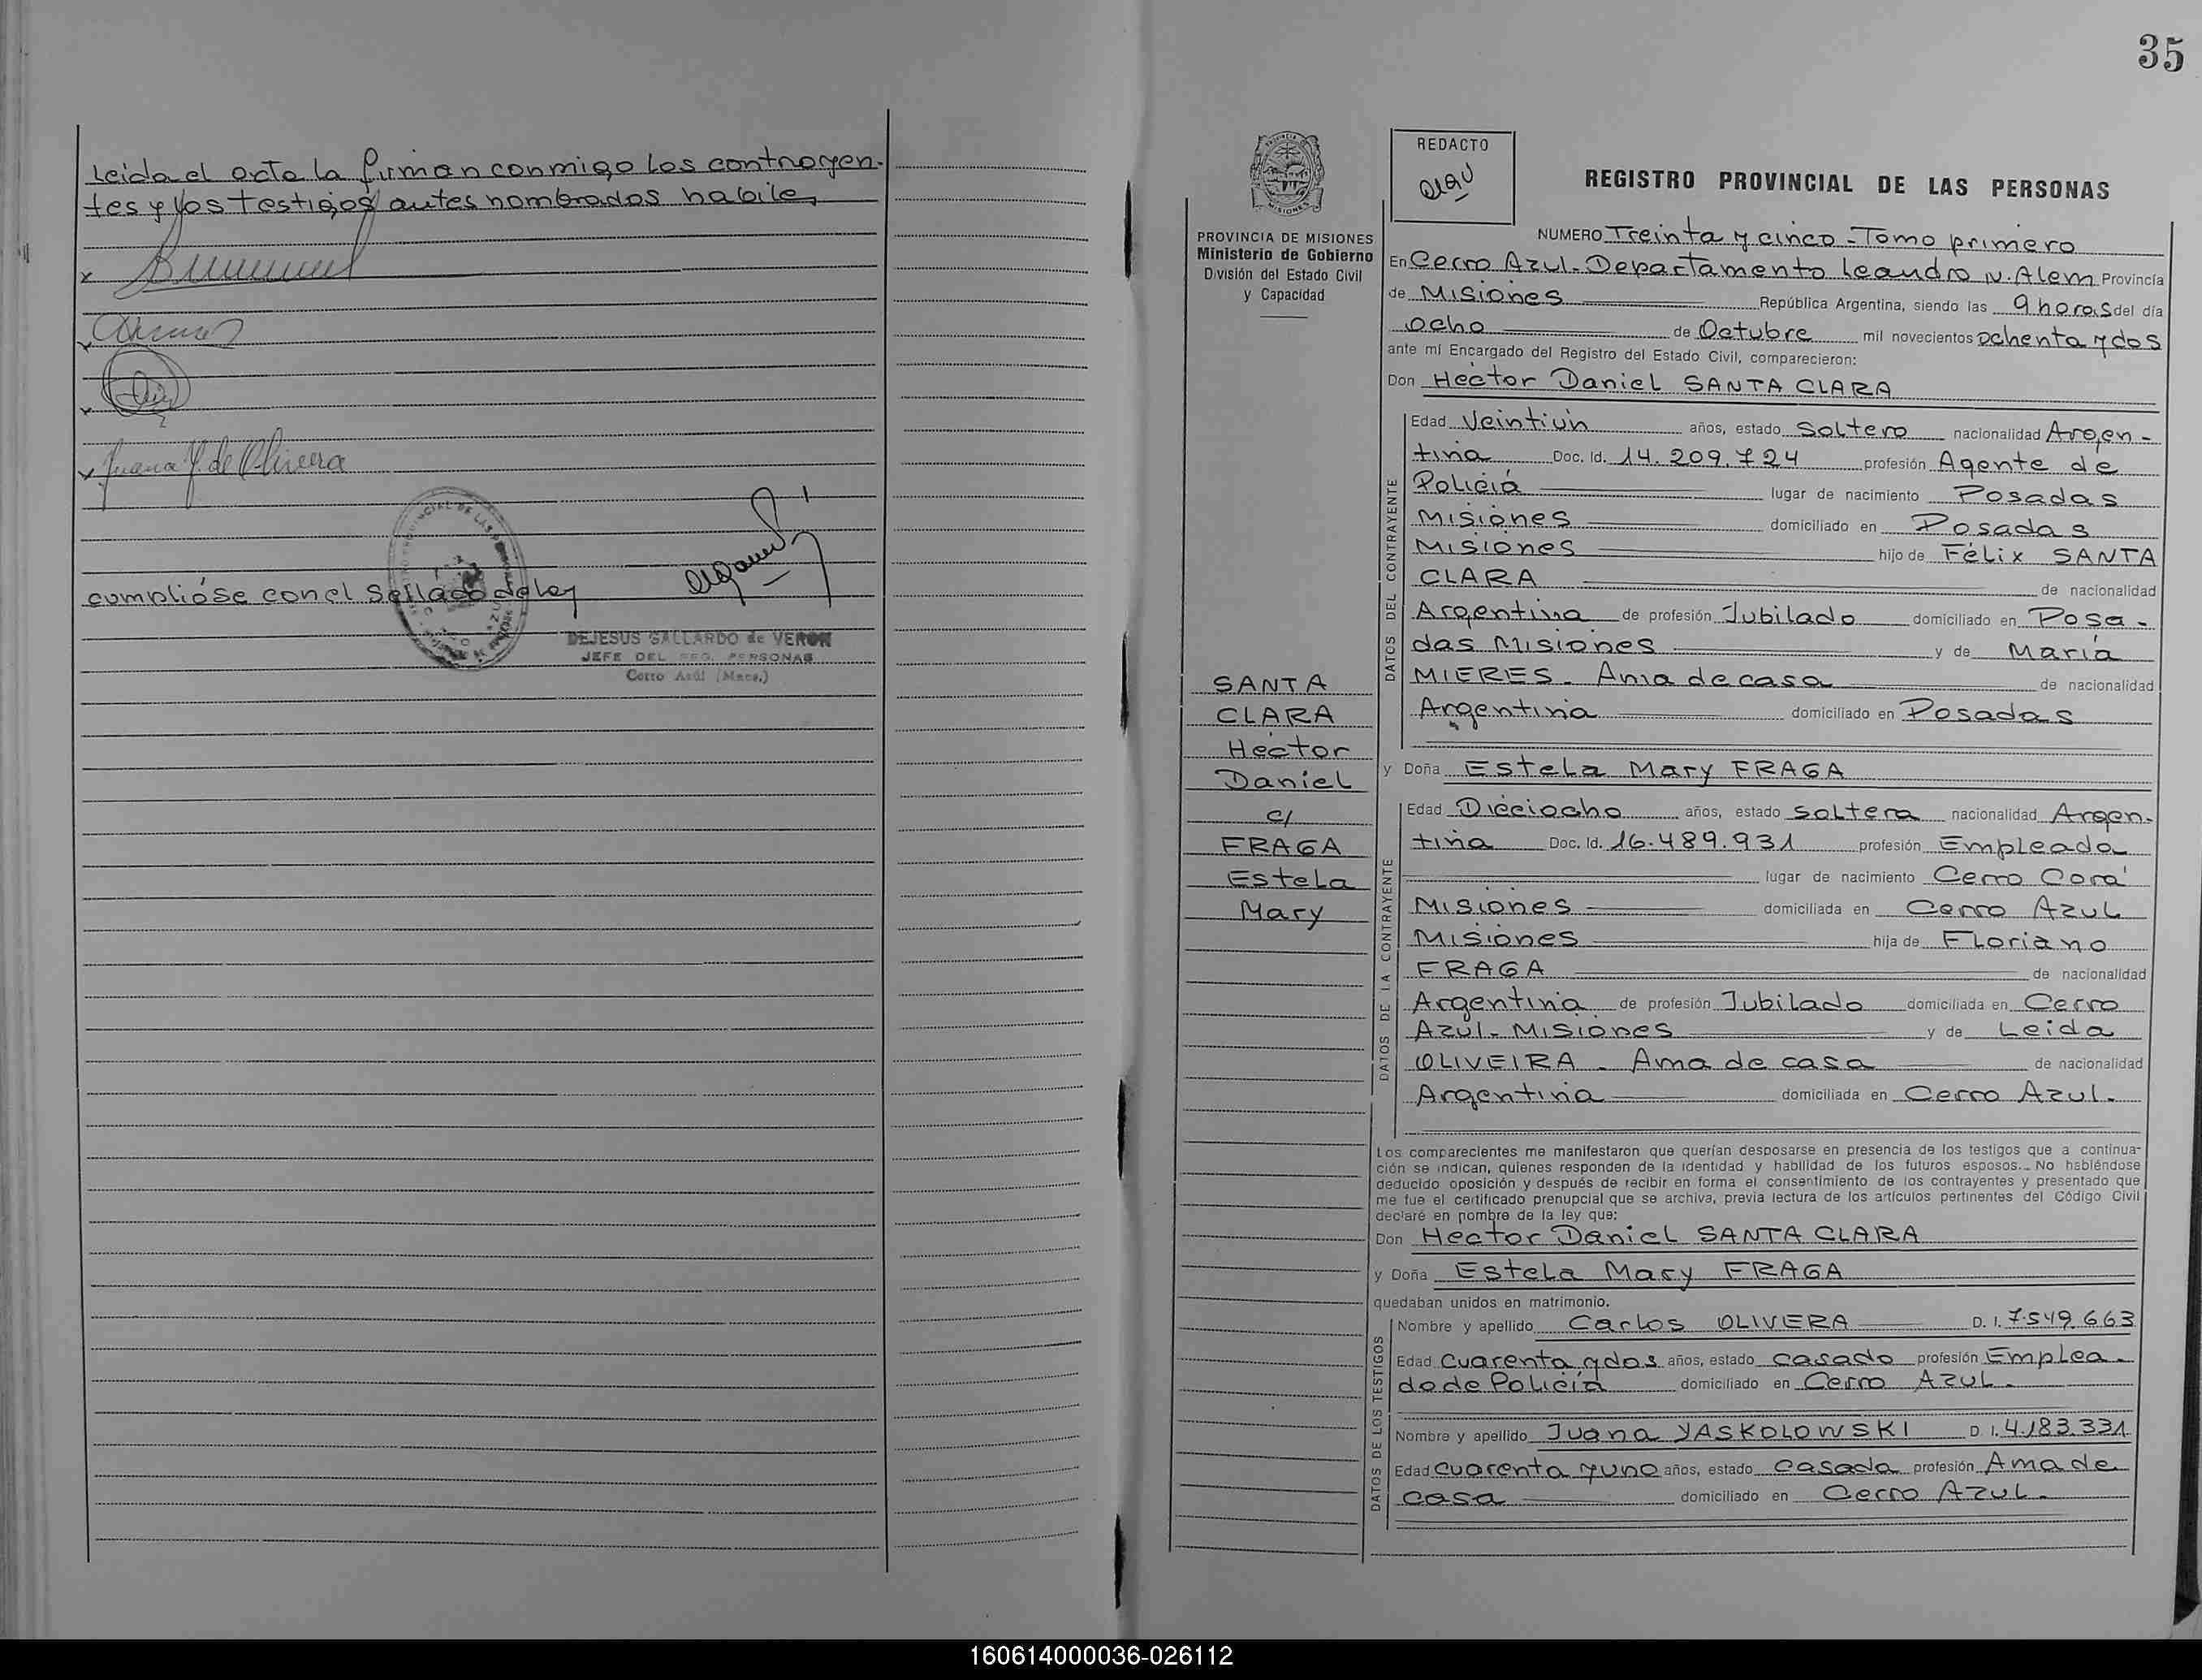 Leida el acta la firman conmigo los contrayen-
tes y los testigos antes nombrados habiles
x
x
x
x Juana Y. de Olivera
cumplióse con el sellado de ley
DEJESUS GALLARDO de VERON
JEFE DEL REG. PERSONAS
Cerro Azul (Mnes.)
35
PROVINCIA DE MISIONES
Ministerio de Gobierno
División del Estado Civil
y Capacidad
SANTA
CLARA
Hector
Daniel
c/
FRAGA
Estela
Mary
REDACTO
REGISTRO PROVINCIAL DE LAS PERSONAS
NUMERO Treinta y cinco - Tomo primero
En Cerro Azul. Departamento Leandro N. Alem Provincia
de Misiones República Argentina, siendo las 9 horas del día
ocho de Octubre mil novecientos ochenta y dos
ante mí Encargado del Registro del Estado Civil, comparecieron:
Don Hector Daniel SANTA CLARA
DATOS DEL CONTRAYENTE
Edad Veintiún años, estado Soltero nacionalidad Argen-
tina Doc. Id. 14.209.724 profesión Agente de
Policía lugar de nacimiento Posadas
Misiones domiciliado en Posadas
Misiones hijo de Félix SANTA
CLARA de nacionalidad
Argentina de profesión Jubilado domiciliado en Posa-
das Misiones y de María
MIERES - Ama de casa de nacionalidad
Argentina domiciliado en Posadas
y Doña Estela Mary FRAGA
DATOS DE LA CONTRAYENTE
Edad Dieciocho años, estado soltera nacionalidad Argen-
tina Doc. Id. 16.489.931 profesión Empleada
lugar de nacimiento Cerro Corá
Misiones domiciliada en Cerro Azul
Misiones hija de Floriano
FRAGA de nacionalidad
Argentina de profesión Jubilado domiciliada en Cerro
Azul - Misiones y de Leida
OLIVEIRA - Ama de casa de nacionalidad
Argentina domiciliada en Cerro Azul.
Los comparecientes me manifestaron que querían desposarse en presencia de los testigos que a continua-
ción se indican, quienes responden de la identidad y habilidad de los futuros esposos.- No habiéndose
deducido oposición y después de recibir en forma el consentimiento de los contrayentes y presentado que
me fue el certificado prenupcial que se archiva, previa lectura de los artículos pertinentes del Código Civil
declaré en nombre de la ley que:
Don Hector Daniel SANTA CLARA
y Doña Estela Mary FRAGA
quedaban unidos en matrimonio.
DATOS DE LOS TESTIGOS
Nombre y apellido Carlos OLIVERA D. I. 7.549.663
Edad Cuarenta y dos años, estado casado profesión Emplea-
do de Policía domiciliado en Cerro Azul.
Nombre y apellido Juana YASKOLOWSKI D. I. 4.183.331
Edad Cuarenta y uno años, estado casada profesión Ama de
casa domiciliado en Cerro Azul.
160614000036-026112